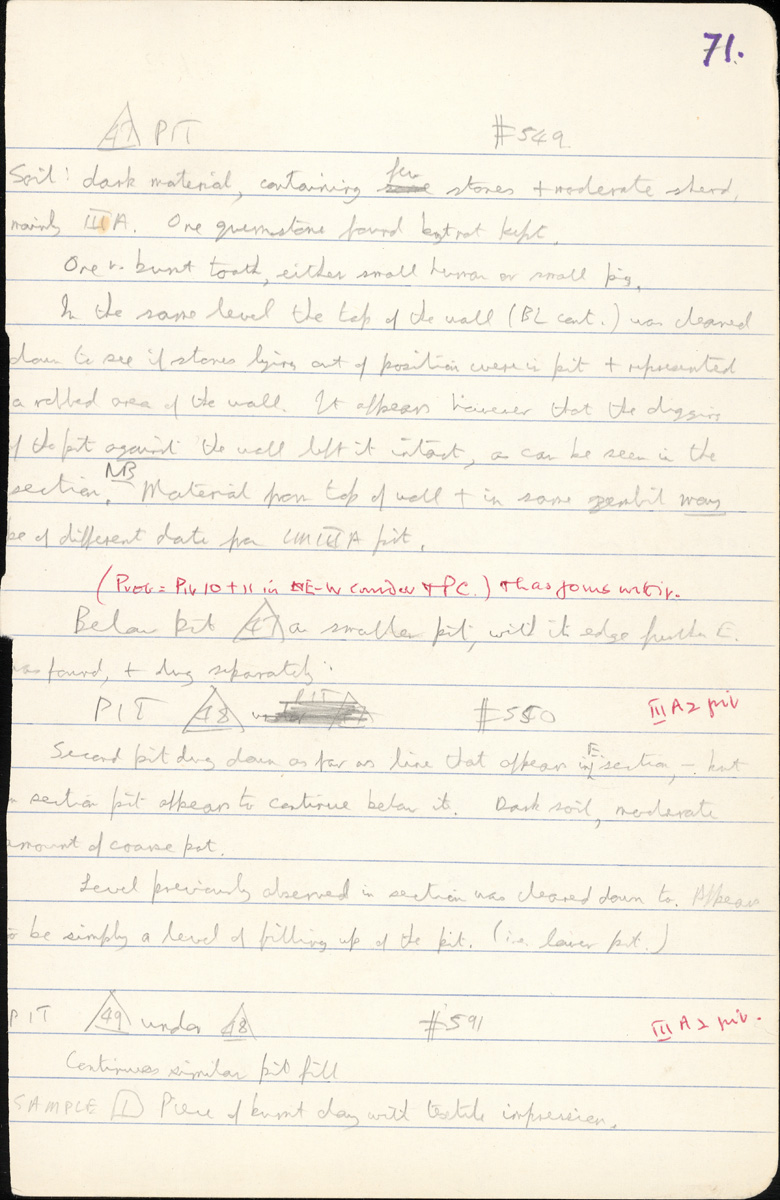 71.
47 PIT #549
Soil: dark material, containing few stones + moderate sherd,
mainly III A. One quernstone found but not kept.
One v. burnt tooth, either small human or small pig.
In the same level the top of the wall (BL cont.) was cleared
down to see if stones lying out of position were in pit + represented
a robbed area of the wall. It appears however that the digging
of the pit against the wall left it intact, as can be seen in the
section. NB Material from top of wall + in same zembil may
be of different date from III A pit.
(Prob = Pits 10 + 11 in E-W corridor + PC.) + has joins with it.
Below pit 47 a smaller pit, with its edge further E.
was found, + dug separately:
PIT 48 #550 III A2 pit
Second pit dug down as far as line that appears in E section, - but
in section pit appears to continue below it. Dark soil, moderate
amount of coarse pot.
Level previously observed in section was cleared down to. Appears
to be simply a level of filling up of the pit. (i.e. lower pit.)
PIT 49 under 48 #591 III A2 pit.
Continues similar pit fill
SAMPLE 1 Piece of burnt clay with textile impression.